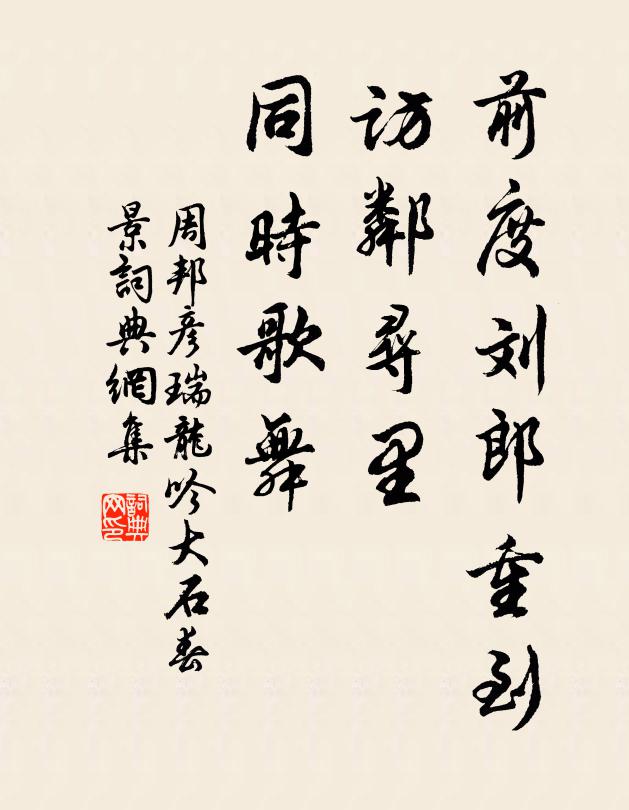 前度刘郎重到
訪鄰尋里
同時歌舞
周邦彦瑞龍吟大石春
景詞典網集
詞典网印